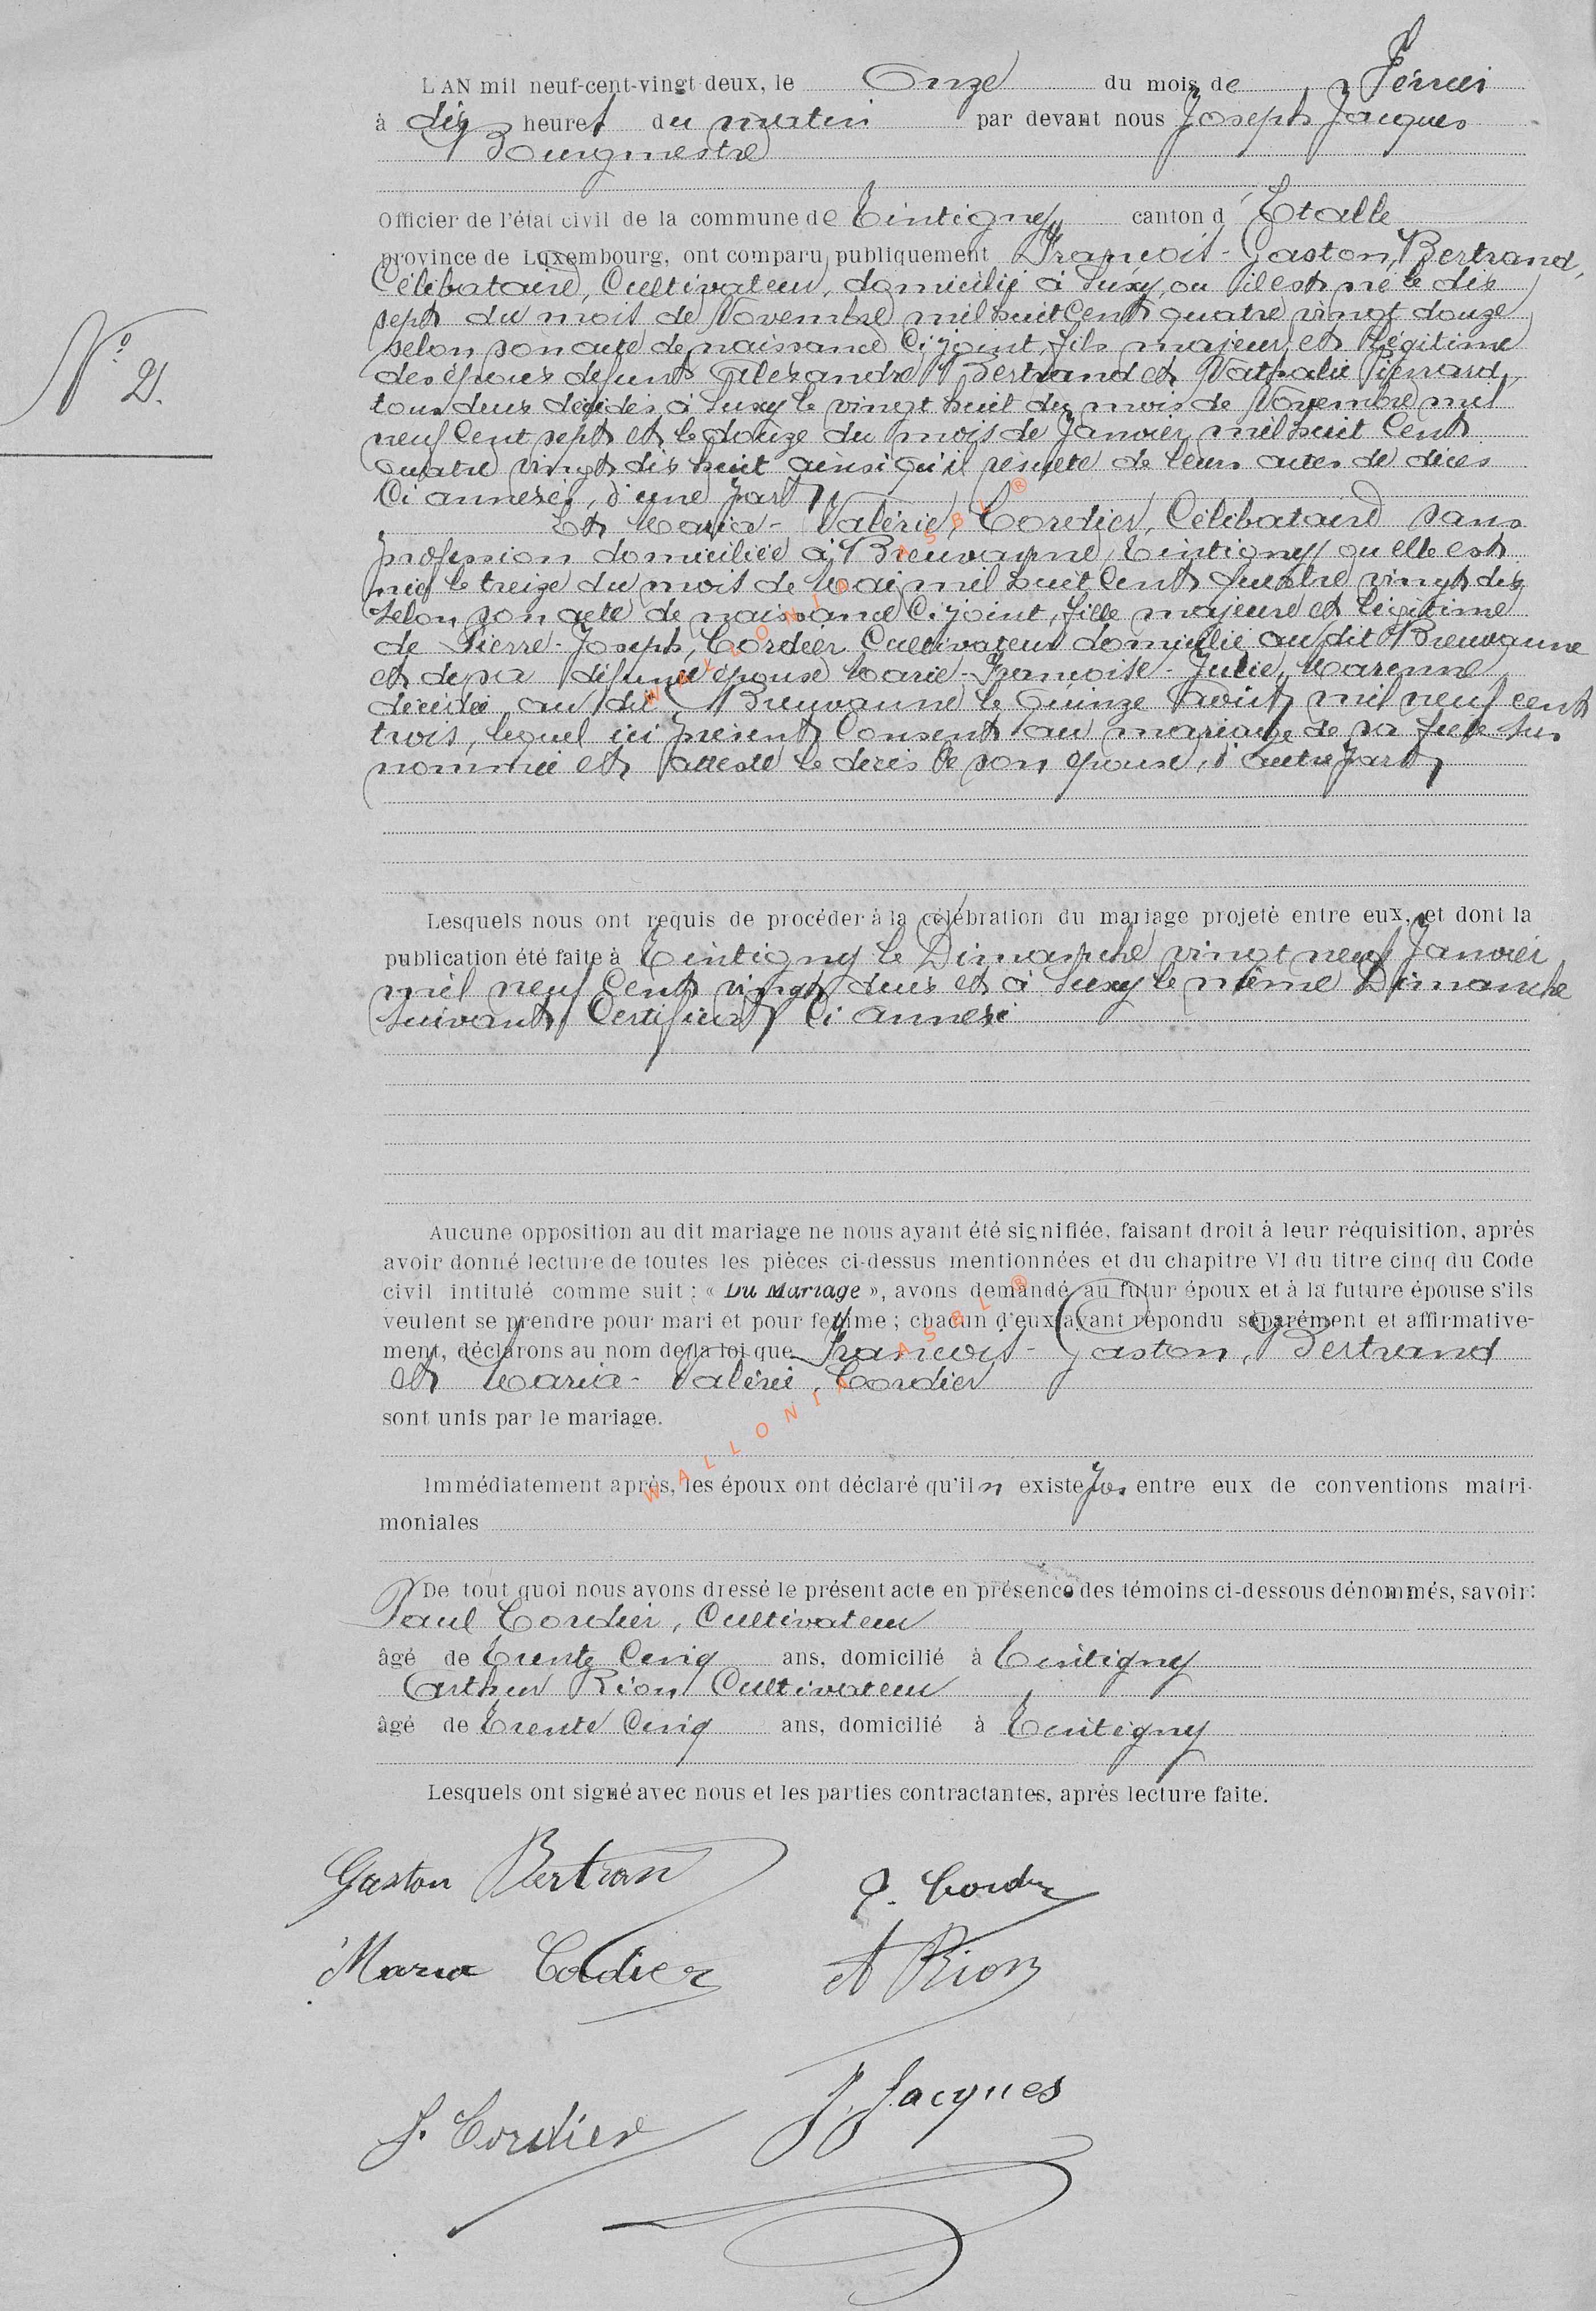 L'AN mil neuf-cent-vingt-deux, le Onze du mois de Févrìer
à dix heures du matin par devant nous Joseph Jacques
Bourgmestre
Officier de l'état civil de la commune de Tintigny canton d'Etalle
province de Luxembourg, ont comparu publiquement François-Gaston, Bertrand,
Célibataire, Cultivateur, domicilié à Suxy, ou il est né le dix
sept du mois de Novembre mil huit Cent quatre vingt douze
selon son acte de naissance Ci joint, fils majeur et légitime
des époux defunts Alexandre Bertrand et Nathalie Pierrard,
tous deux décédés à Suxy le vingt huit du mois de Novembre mil
neuf Cent sept et le douze du mois de Janvier mil huit Cent
quatre vingt dix huit ainsi qu'il résulte de leurs actes de décès
Ci annexés, d'une part,
N° 2.
Et Maria-Valérie, Cordier, Célibataire sans
profession domiciliée à Breuvanne, Tintigny ou elle est
née le treize du mois de Mai mil huit Cent quatre vingt dix
selon son acte de naissance Ci joint, fille majeure et légitime
de Pierre-Joseph, Cordier Cultivateur domicilié au dit Breuvanne
et de sa défunte épouse Marie-Françoise-Julie, Marenne
décédée au dit Breuvanne le Quinze Août mil neuf cent
trois, lequel ici présent Consent au mariage de sa fille sus
nommée et atteste le décès de son épouse, d'autre part,
Lesquels nous ont requis de procéder à la célébration du mariage projeté entre eux, et dont la
publication été faite à Tintigny le Dimanche vingt neuf Janvier
mil neuf Cent vingt deux et à Suxy le même Dimanche
suivant Certificat Ci annexé
Aucune opposition au dit mariage ne nous ayant été signifiée, faisant droit à leur réquisition, après
avoir donné lecture de toutes les pièces ci-dessus mentionnées et du chapitre VI du titre cinq du Code
civil intitulé comme suit : « Du Mariage », avons demandé au futur époux et à la future épouse s'ils
veulent se prendre pour mari et pour femme ; chacun d'eux ayant répondu séparément et affirmative-
ment, déclarons au nom de la loi que François-Gaston, Bertrand
et Maria-Valérie, Cordier
sont unis par le mariage.
Immédiatement après, les époux ont déclaré qu'il n existe pas entre eux de conventions matri-
moniales
De tout quoi nous avons dressé le présent acte en présence des témoins ci-dessous dénommés, savoir:
Paul Cordier, Cultivateur
âgé de Trente Cinq ans, domicilié à Tintigny
Arthur Rion, Cultivateur
âgé de Trente Cinq ans, domicilié à Tintigny
Lesquels ont signé avec nous et les parties contractantes, après lecture faite.
Gaston Bertran
P. Cordier
Maria Cordier
A Rion
J. Cordier
J. Jacques
WALLONIA ASBL ®
WALLONIA ASBL ®